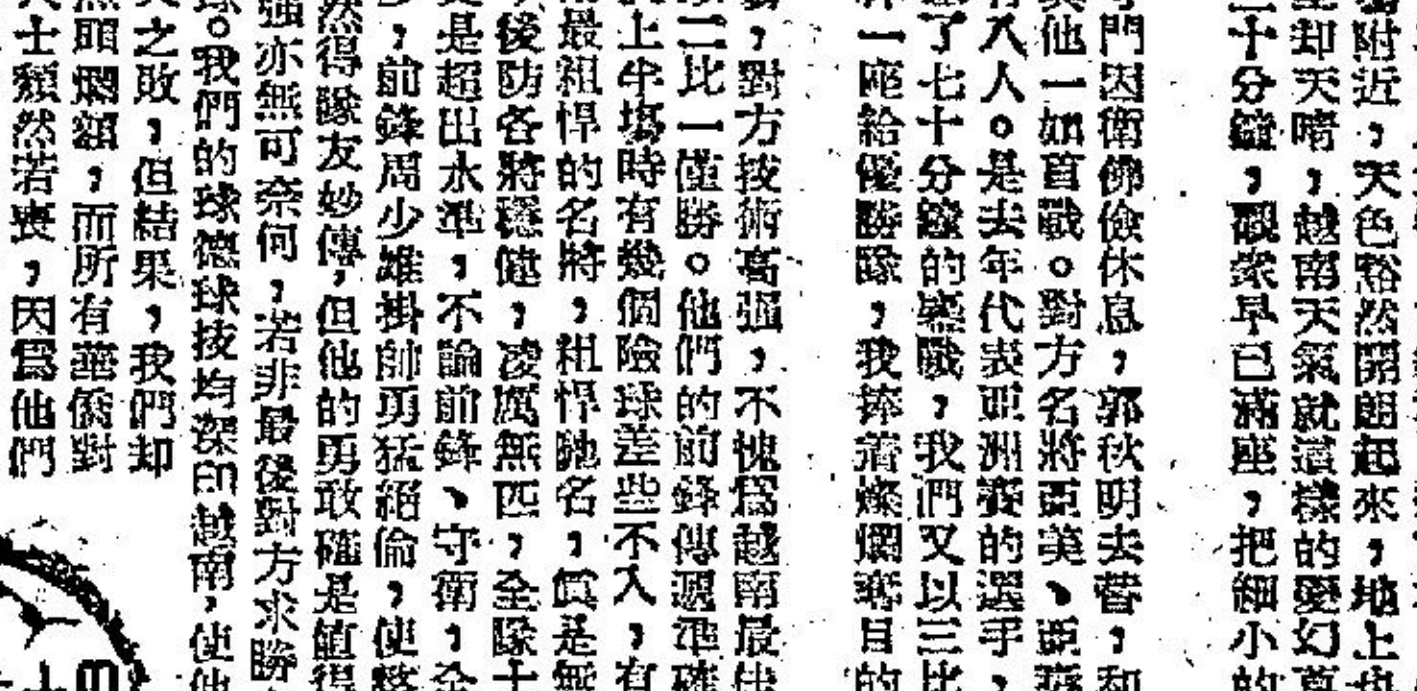 附近，天色豁然開朗起來，地上也
却天晴，越南天氣就這樣的變幻莫
二十分鐘，觀衆早已滿座，把細小的
門因衛佛儉休息，郭秋明去替，和
其他一如首戰。對方名將亞美、亞
有八人。是去年代表亞洲賽的選手，
了七十分鐘的鏖戰，我們又以三比
一座給優勝隊，我捧着燦爛奪目的
，對方技術高强，不愧爲越南最佳
二比一僅勝。他們的前鋒傳遞準確
上半塲時有幾個險球差些不入，有
最粗悍的名將，粗悍馳名，眞是無
後防各將穩健，凌厲無匹，全隊十
是超出水準，不論前鋒、守衛，全
，前鋒周少雄掛帥勇猛絕倫，使整
然得隊友妙傳，但他的勇敢確是値得
强亦無可奈何，若非最後對方求勝
球。我們的球德球技均深印越南，使他
之敗，但結果，我們却
焦頭爛額，而所有華僑對
人士頹然若喪，因爲他們